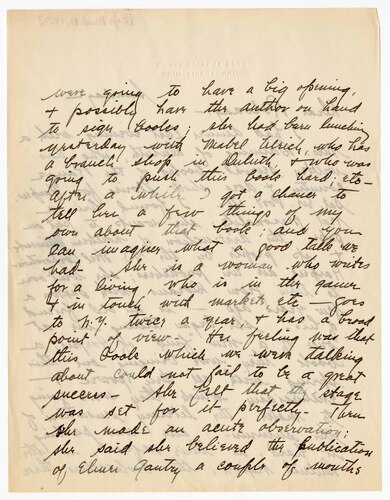 were going to have a big opening,
+ possibly have the author on hand
to sign books; she had been lunching
yesterday with Mabel Ulrich, who has
a branch shop in Duluth, + who was
going to push this book hard; etc—
after a while I got a chance to
tell her a few things of my
own about that book; and you
can imagine what a good talk we
had— She is a woman who writes
for a living, who is in the game
+ in touch with markets, etc— goes
to N.Y. twice a year, + has a broad
point of view— Her feeling was that
this book which we were talking
about could not fail to be a great
success— She felt that the stage
was set for it perfectly— Then
she made an acute observation;
she said she believed the publication
of Elmer Gantry a couple of months